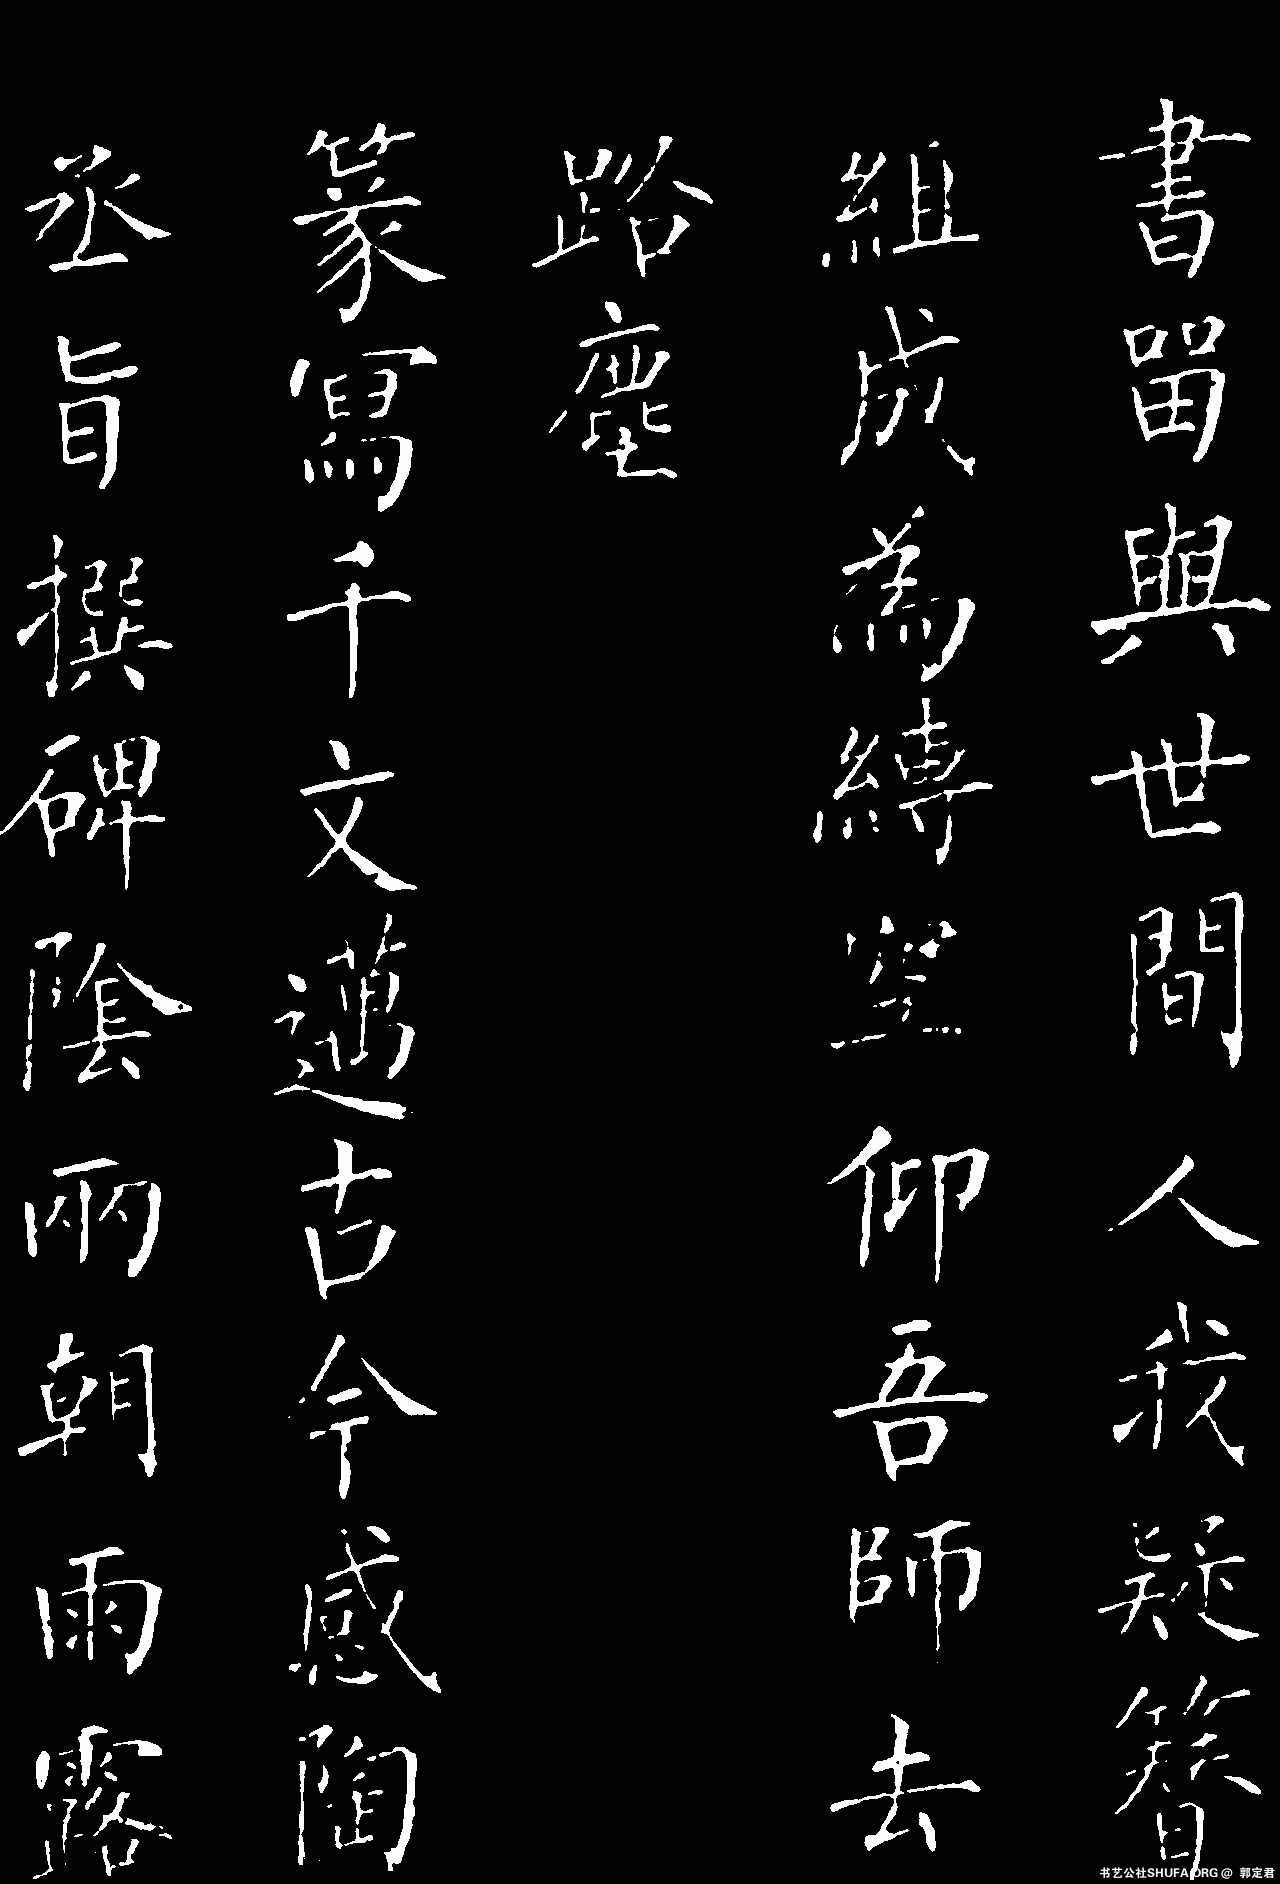 書留與世間人我疑簪
組成為縛空仰吾師去
路塵
篆寫千文邁古今感陶
丞旨撰碑陰兩朝雨露
书艺公社SHUFA.ORG @ 郭定君